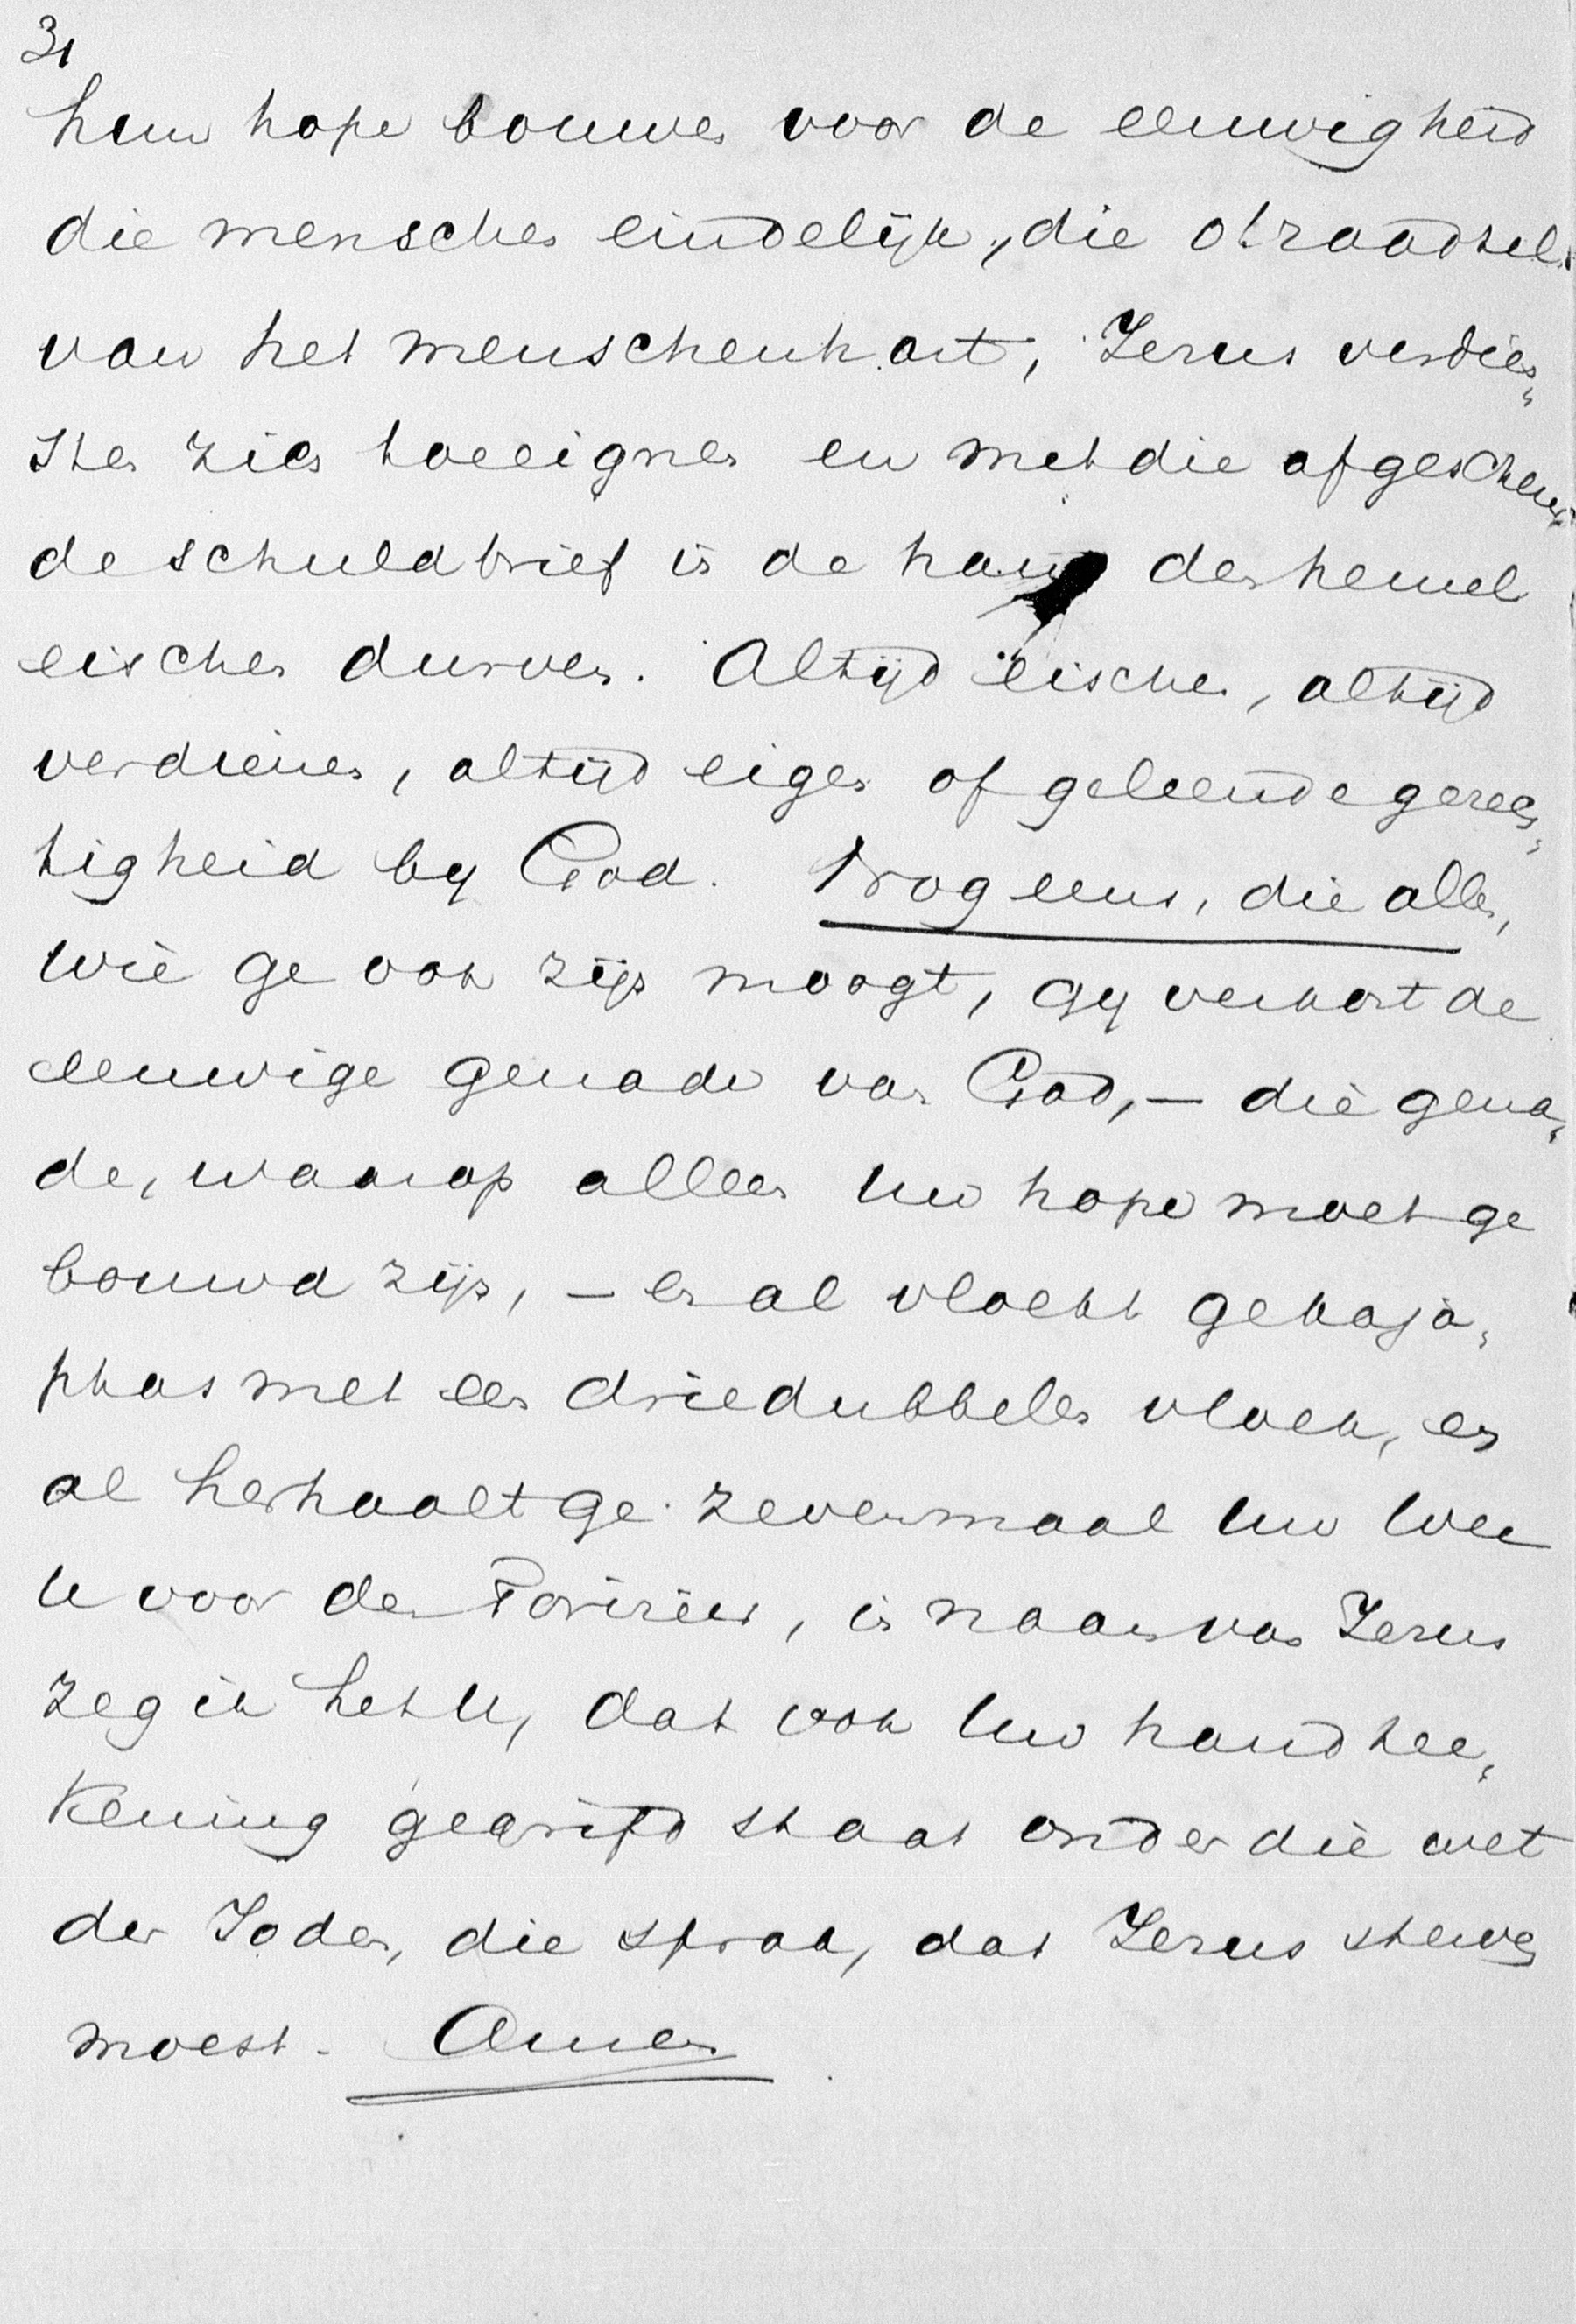 31
hun hope bouwen voor de eeuwigheid
die menschen eindelijk, die o! raadsel
van het menschenhart, Jezus verdien„
sten zich toeeignen en met die afgescheur„
de schuldbrief in de hand den hemel
eischen durven. Altijd eischen, altijd
verdienen, altijd eigen of geleende gerec„
tigheid by God. Nog eens, die allen,
wie ge ook zijn moogt, gy verkort de
eeuwige genade van God, — die gena„
de, waarop alleen uw hope moet ge
bouwd zijn, — en al vloekt ge kaja„
phas met een driedubbelen vloek, en
al herhaalt ge zevenmaal uw wee
u voor den Farizeër, in naam van Jezus
zeg ik het U, dat ook uw handtee„
kening gegrifd staat onder die wet
der Joden, die sprak, dat Jezus sterven
moest. Amen